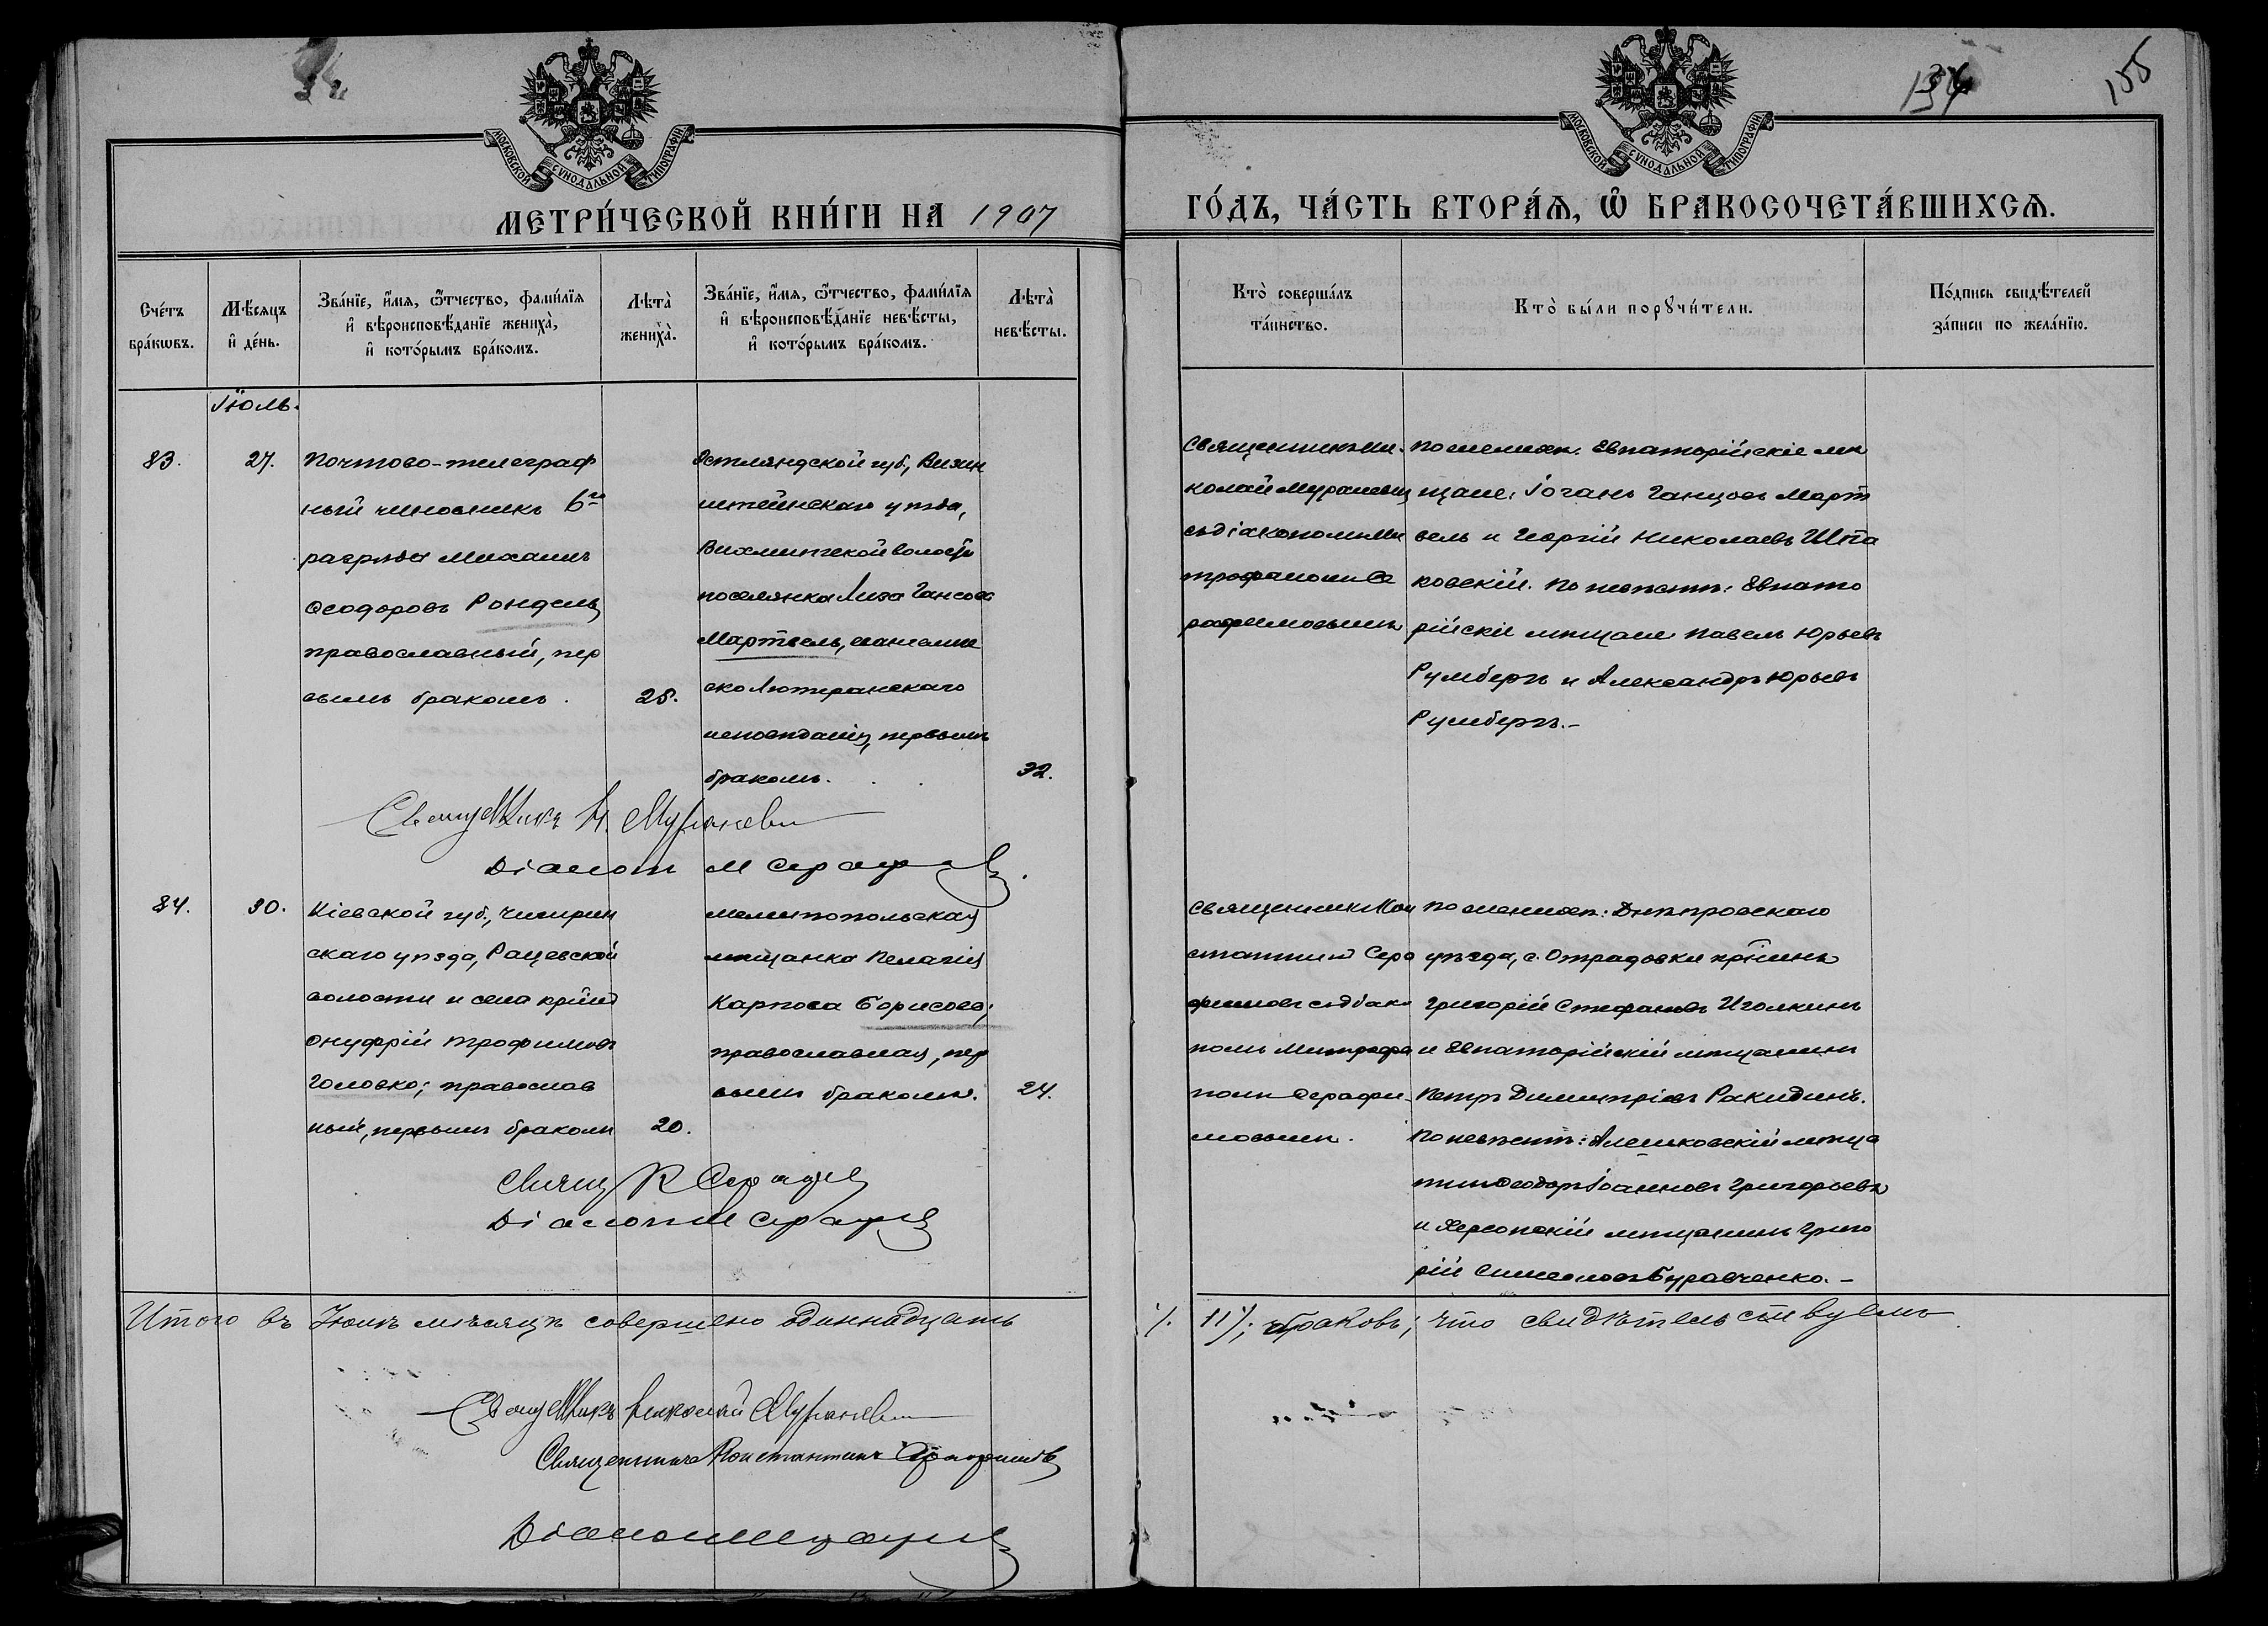 134
155
МОСКОВСКОЙ СѴНОДАЛЬНОЙ ТИПОГРАФІИ
МОСКОВСКОЙ СѴНОДАЛЬНОЙ ТИПОГРАФІИ
МЕТРИ́ЧЕСКОЙ КНИ́ГИ НА 1907
ГО́ДЪ, ЧА́СТЬ ВТОРА́Ѧ, Ѡ҆ БРАКОСОЧЕТА́ВШИХСѦ.
Сче́тъ
бра́кѡвъ.
Мѣ́сяцъ
и҆ де́нь.
Зва́нїе, и҆́мѧ, ѻ҆́тчество, фами́лїѧ
и҆ вѣроисповѣ́данїе жениха̀,
и҆ кото́рымъ бра́комъ.
Лѣта̀
жениха̀.
Зва́нїе, и҆́мѧ, ѻ҆́тчество, фами́лїѧ
и҆ вѣроисповѣ́данїе невѣ́сты,
и҆ кото́рымъ бра́комъ.
Лѣта̀
невѣ́сты.
Кто̀ соверша́лъ
та́инство.
Кто̀ бы́ли порꙋчи́тели.
По́дпись свидѣ́телей
за́писи по жела́нїю.
Іюль.
83.
27.
Почтово-телеграф
ный чиновникъ 6го
разряда Михаилъ
Ѳеодоровъ Рондель,
православный, пер
вымъ бракомъ.
25.
Эстляндской губ., Вейсен
штейнскаго уѣзда,
волости
поселянка Лиза Гансова
Мартвель, евангелич
ско Лютеранскаго
исповѣданія, первымъ
бракомъ.
32.
Священникъ Ни
колай Мураневич
съ діакономъ Ми
трофаномъ Се
рафимовымъ
По женихѣ: Евпаторійскіе мѣ
щане: Іоганъ Ганцовъ Март
вель и Георгій Николаевъ Шпа
ковскій. По невѣстѣ: Евпато
рійскіе мѣщане Павелъ Юрьевъ
Румбергъ и Александръ Юрьевъ
Румбергъ.–
Священникъ Н. Мураневич
Діаконъ М Сераф
84.
30.
Кіевской губ., Чигирин
скаго уѣзда, Рацевской
волости и села кр-нъ
Онуфрій Трофимовъ
Головко; православ
ный, первымъ бракомъ
20.
Мелитопольская
мѣщанка Пелагія
Карпова Борисова;
православная, пер
вымъ бракомъ.
24.
Священникъ Кон
стантинъ Сера
фимовъ съ діако
номъ Митрофа
номъ Серафи-
мовымъ.
По женихѣ: Днѣпровскаго
уѣзда, с. Отрадовки кр-нинъ
Григорій Стефановъ Иголкинъ
и Евпаторійскій мѣщанинъ
Петръ Димитріевъ Ракидинъ.
По невѣстѣ: Алешковскій мѣща
нинъ Ѳеодоръ Іоанновъ Григорьевъ
и Херсонскій мѣщанинъ Григо
рій Симеоновъ Буравченко.–
Свящ. К Сераф
Діаконъ М Сераф
Итого въ Іюлѣ мѣсяцѣ совершено одиннадцать
/. 11 /. браковъ; что свидѣтельствуемъ.
Священникъ Николай Мураневич
Священникъ Константинъ Серафимовъ
Діаконъ М Сераф